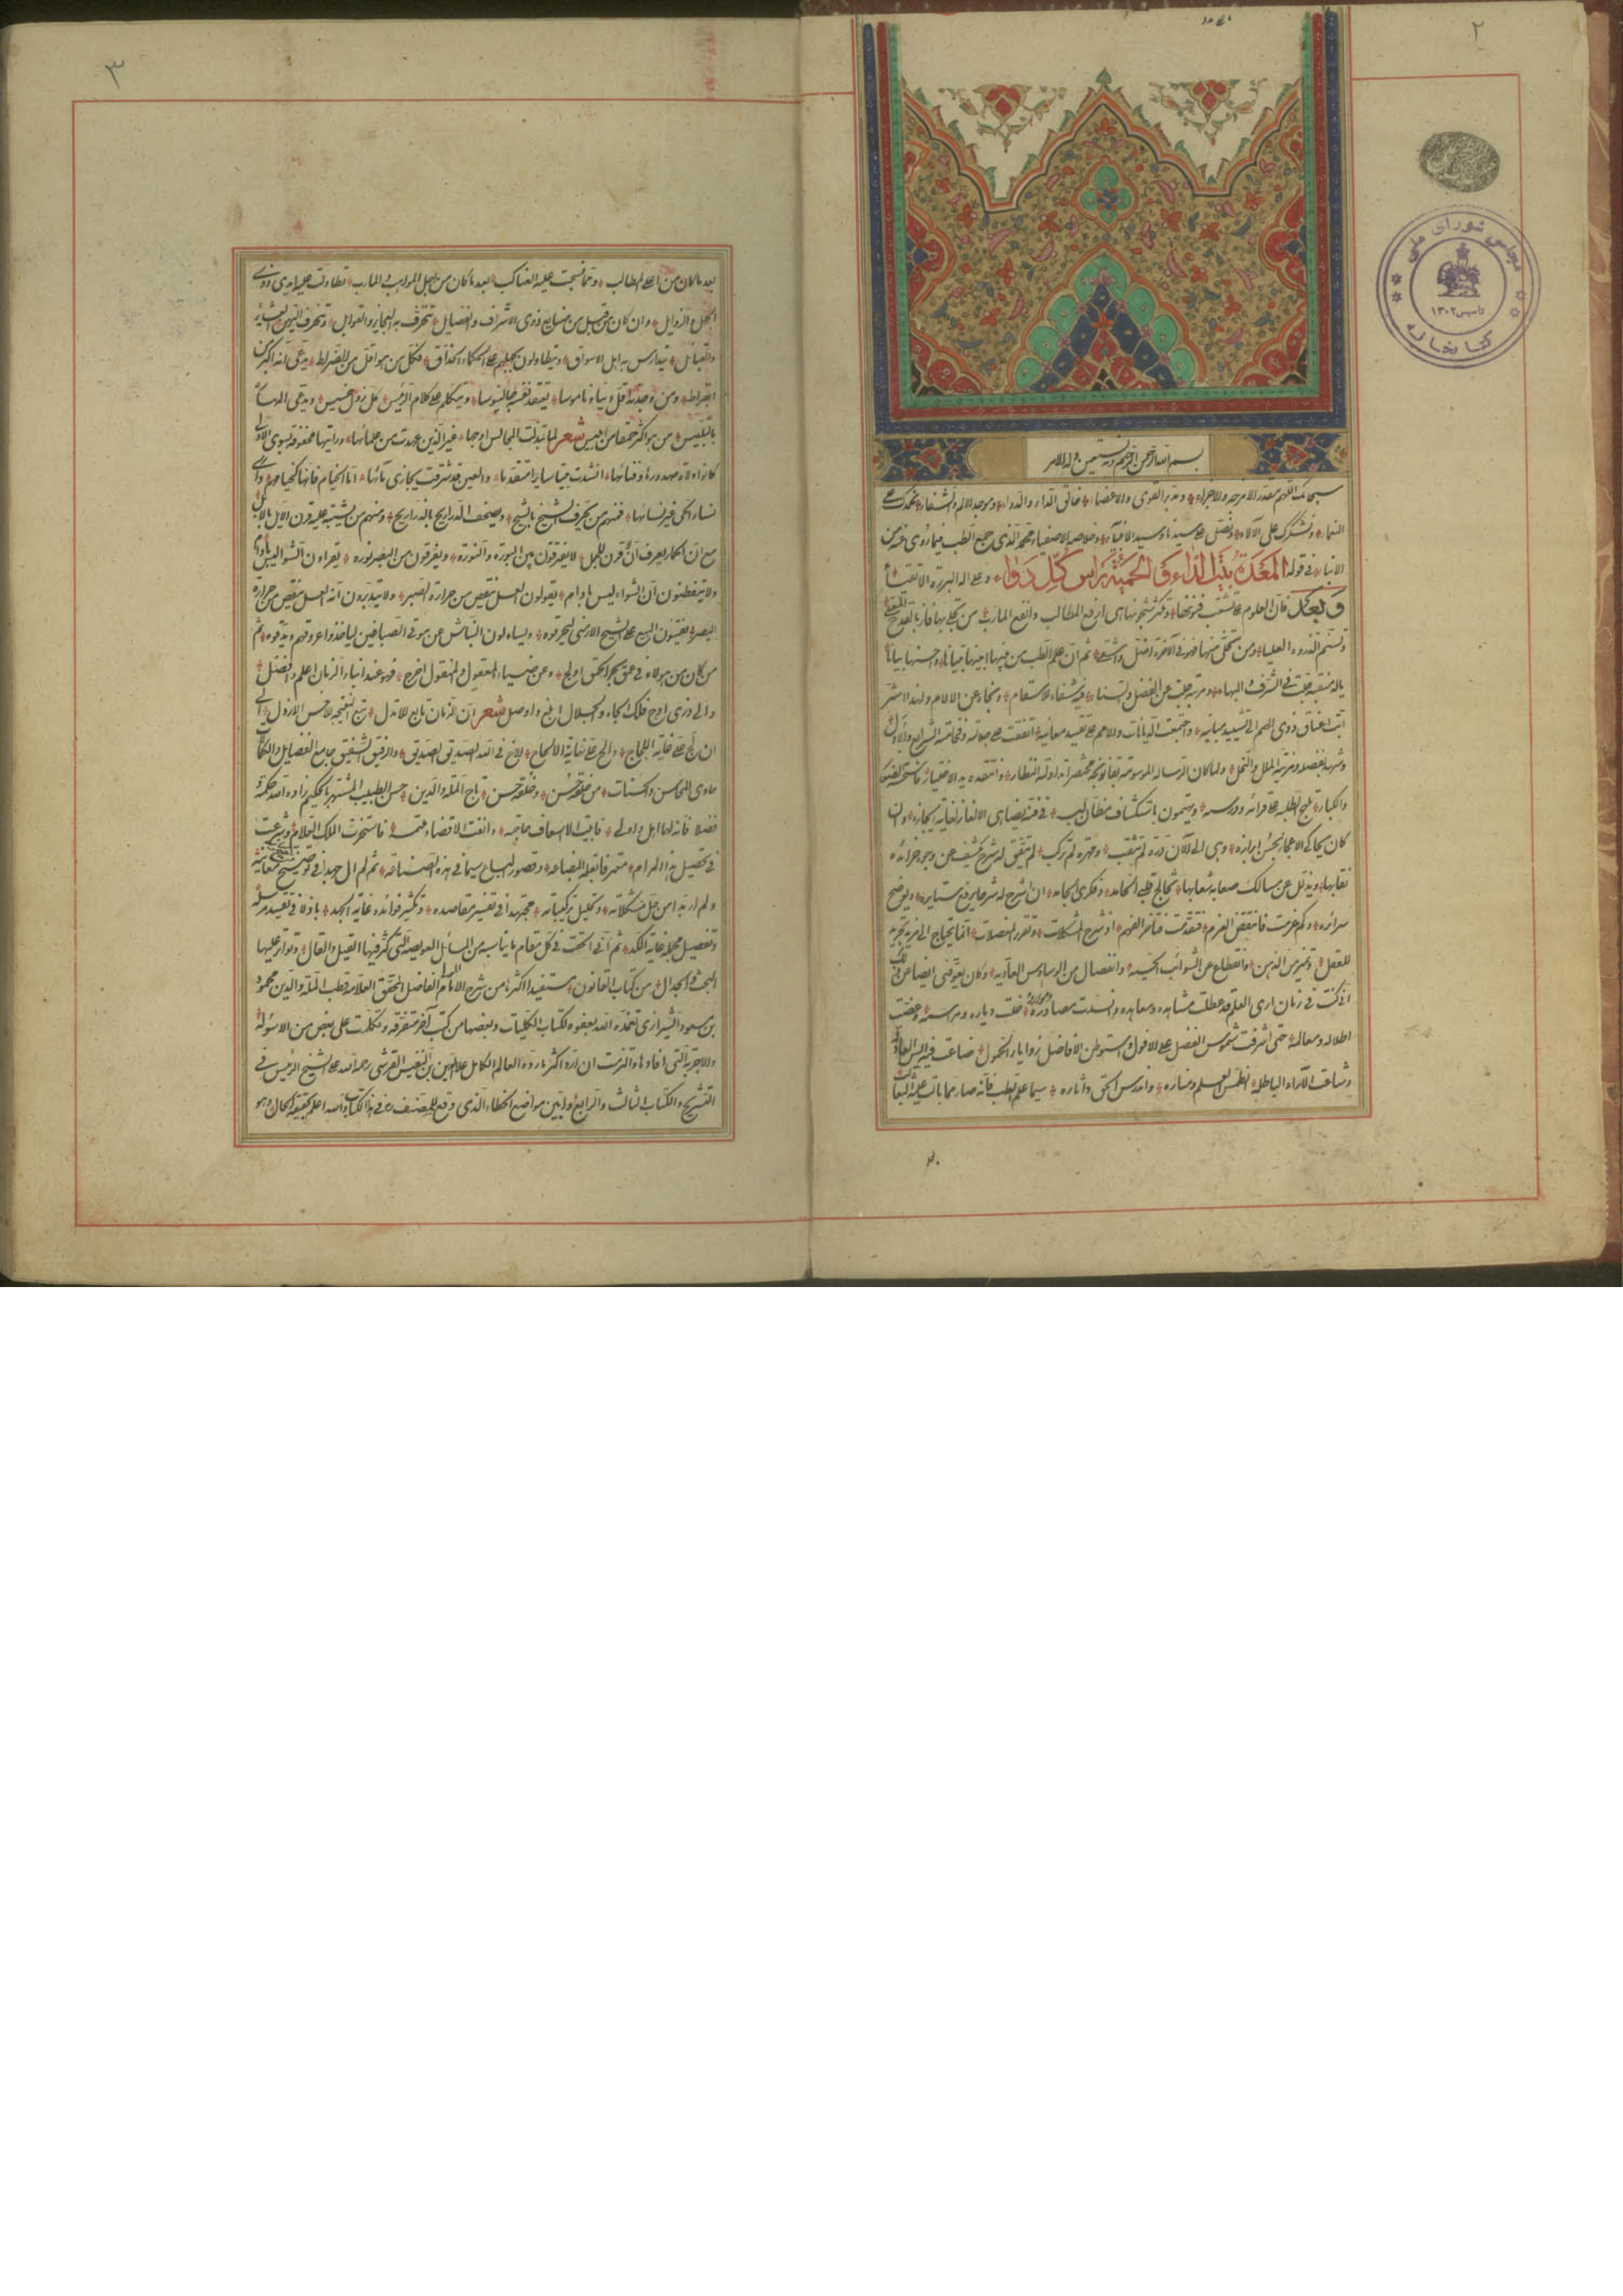 ٢
مجلس شورای ملی
تاسیس ١٣٠٢
کتابخانه
بسم الله الرحمن الرحیم وبه نستعین
سبحانک اللهم مقدر الامزجه والاجزاء ومدبر القوی والاعضاء خالق الداء والدواء وموجد الالم والشفاء نحمدک علی
النعماء ونشکرک علی الآلاء ونصلی علی سیدنا وسید الانبیاء وخلاصه الاصفیاء محمد الذی جمع الطب فیما روی عنه من
الانباء فی قوله المعدة بیت الداء والحمیة راس کل دواء وعلی اله البررة الاتقیاء
وبعد فان العلوم علی تشعب فنونها وتکثر شجونها هی ارفع المطالب وانفع المآرب من تحلی بها فاز بالقدح المعلی
وتسنم الذروه العلیا ومن تخلی منها فهو فی الآخرة اضل واشقی ثم ان علم الطب من بینها ابینها تبیانا واحسنها بیانا
یاله منقبة جلت فی الشرف والبهاء ومرتبة جلت عن الفضل والسناء فیه شفاء للاسقام ونجاة عن الالام ولهذا اشر
ابت اعناق ذوی الهمم الی تشیید مبانیه واجتمعت الدیانات والامم علی تقیید معانیه اتفقت علی جلالته وفخامته الشرایع والاول
وشهد بفضله ومزیته الملل والنحل ولما کان الرساله الموسومة بقانونچه مختصرا
والکبار تلهج الطلبه علی قراءته ودرسه ویتهمون باستکشاف
کان یحاکی الاعجاز بحسن ابرازه وهی الی الآن درة لم تثقب ومهرة لم ترکب لم یتفق له شرح یکشف عن وجوه خرائده
نقابها ویذلل عن مسالک صعابه شعابها تخالج قلبی الخامد وفکری الجامد ان اشرح له شرحا یرفع ستایره ویوضح
سرائره وکم عزمت فانتقض العزم فتقدمت فتأخر الفهم اذ شرح المشکلات وتقریر المعضلات انما یحتاج الی مزید تجرید
للعقل وتمییز من الذهن وانقطاع عن الشوائب الحسیه وانفصال من الوساوس العادیه وکان یعوقنی ایضا عن ذلک
انی کنت فی زمان اری العلم قد عطلت مشاهده ومعاهده وانسدت مصادره وموارده خلت دیاره ومراسمه وعفت
اطلاله ومعالمه حتی اشرفت شموس الفضل علی الافول واستوطن الافاضل زوایا الخمول
وشاعت الآراء الباطله انطمس العلم ومناره واندرس الحق وآثاره سیما علم الطب فانه صار مما بالت علیه الثعالب
٣
بعد ما کان من اعلی المطالب ومما نسجت علیه العناکب بعد ما کان من اجل المواهب والمآرب تطاولت علیه ایدی ذوی
الجهل والرذایل وان کان من قبیل من صنایع ذوی الاشراف والفضایل تتحرف به العجایز والقوابل
والقبائل یتدارس به اهل الاسواق ویتطاولون بجهلهم علی الحکماء الحذاق فکل من هو اقل من الضراط یدعی انه اکبر من
ابقراط ومن وجدته اقل دینا وناموسا یعتقد نفسه جالینوسا ویتکلم علی کلام الرئیس کل رذل خسیس ویدعی الرسالة
بالتلبیس من هو اکثر حمقا من ابلیس شعر لما تبدلت المجالس اوجها غیر الذین عهدت من علمائها ورایتها محفوفة بسوی الاولی
کانوا ولاة صدورها وفنائها انشدت بیتا سایرا متقدما والعین قد شرقت بجاری مائها اما الخیام فانها کخیامهم واری
نساء الحی غیر نسائها فمنهم من یحرف الشیخ بالشیح ویصحف الدراریج بالذراریح ومنهم من یشتبه علیه قرن الایل بالابل
مع ان الحمار یعرف ان لا قرن للجمل لا یفرقون بین البورة والنورة
ولا یتفطنون ان الشواء لیس باوام یقولون العسل ینقص من حرارة الصبر ولا یتدبرون انه العسل ینقص من حرارة
من کان من هؤلاء فی عمق بحر الحمق اولج وعن ضیاء المعقول والمنقول اخرج فهو عند ابناء الزمان اعلم وافضل
والی ذری اوج فلک الجاه والجلال ارفع واوصل شعر ان الزمان تابع للانذل تبع النتیجة للاخس الارذل الی
ان لج علی غایة اللجاج والح علی نهایة الالحاح الاخ فی الله الصدیق الصدیق والرفیق الشفیق جامع الفضایل والکمالات
حاوی المحاسن والحسنات من خلقه حسن وخلقه حسن تاج الملة والدین حسن الطبیب المشتهر بالحکیم زاده الله حکمة
فضلا فانه لها اهل واولی فابیت الا اسعاف حاجته وانفت الا قضاء ملتمسه فاستخرت الملک العلام وشرعت
فی تحصیل هذا المرام معترفا بقلة البضاعة وقصور الباع سیما فی هذه الصناعة ثم لم ال جهدا فی توضیح معانیه
ولم ار بدا من حل مشکلاته وتحلیل ترکیباته مجتهدا فی تفسیر مقاصده وتکثیر فوائده غایة الجهد باذلا فی تقیید مرسله
وتفصیل مجمله غایة الکد ثم انی الحقت فی کل مقام ما یناسبه من المسائل العویصة التی کثر فیها القیل والقال وتواتر علیها
البحث والجدال من کتاب القانون مستفیدا اکثرها من شرح الامام الفاضل المحقق العلامة قطب الملة والدین محمود
بن مسعود الشیرازی تغمده الله بعفوه لکتاب الکلیات وبعضها من کتب اخر متفرقة وتکلمت علی بعض من الاسولة
والاجوبة التی افادوها والتزمت ان ارد اکثر ما رده العالم الکامل علاء الدین بن النفیس القرشی رحمه الله علی الشیخ الرئیس فی
التشریح والکتاب الثالث والرابع وابین مواضع الخطاء الذی وقع للمصنف ره فی هذا الکتاب والله اعلم بحقیقة الحال وهو